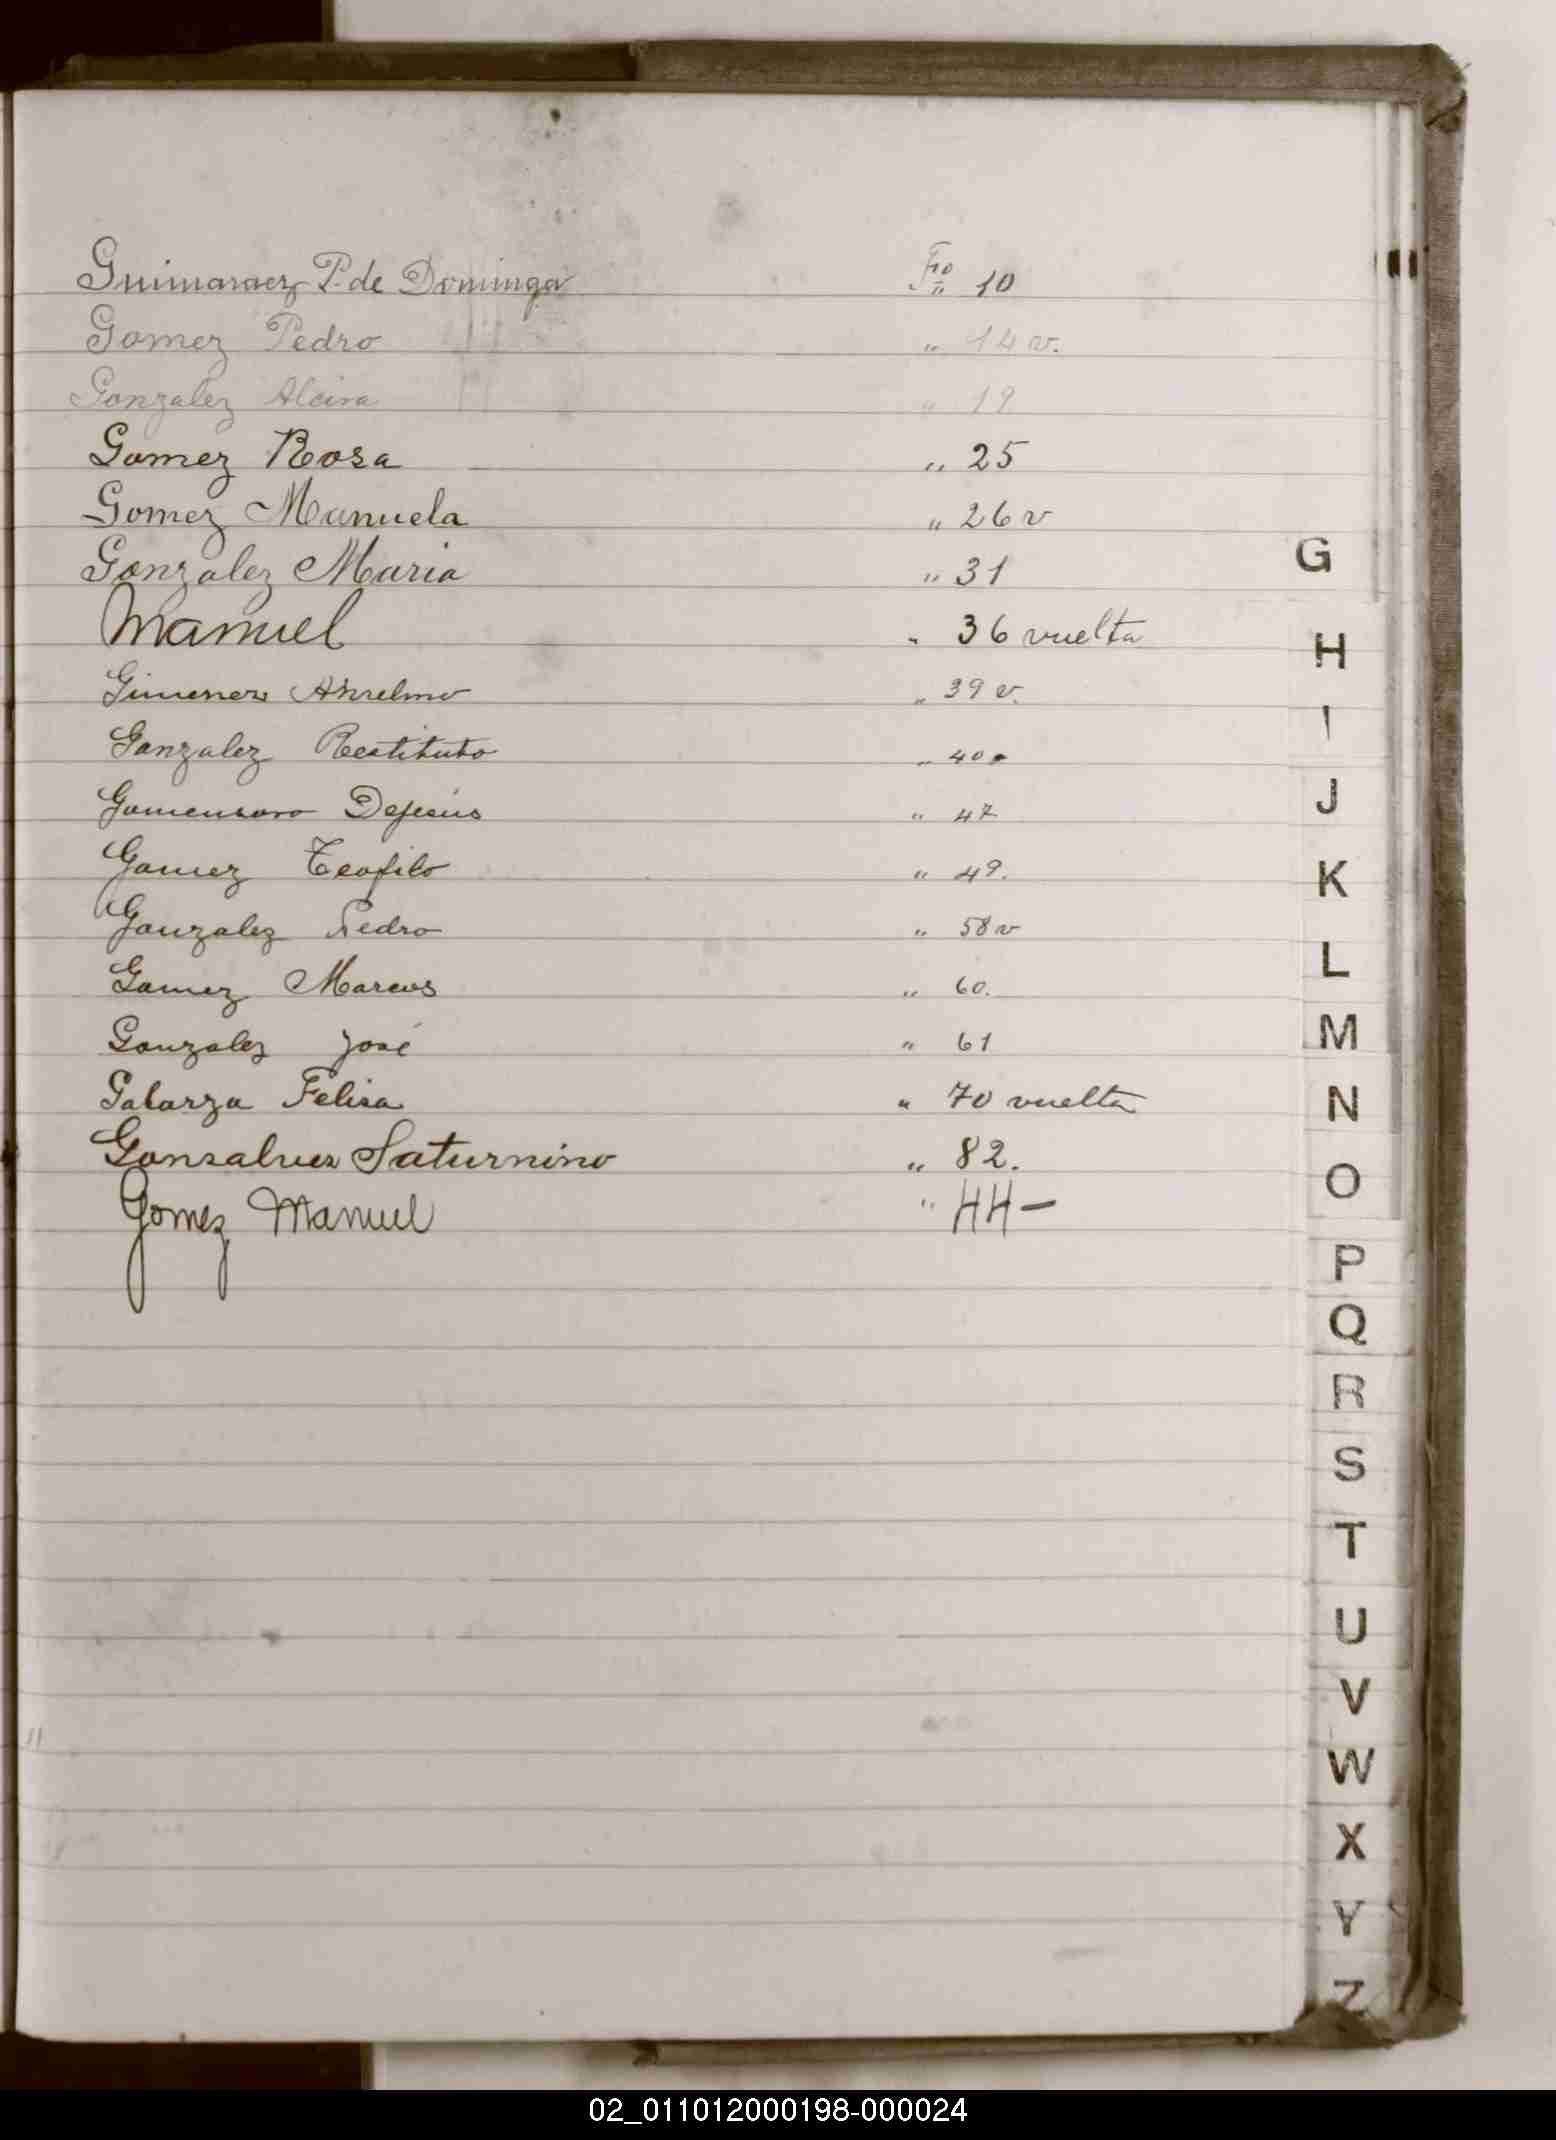 Guimaraez P. de Dominga Fo 10
Gomez Pedro " 14 v.
Gonzalez Alcira " 19
Gomez Rosa " 25
Gomez Manuela " 26 v
Gonzalez Maria " 31
G
Manuel " 36 vuelta
H
Gimenez Anselmo " 39 v.
I
Gonzalez Restituto " 40
Gomensoro Dejesús " 47
J
Gomez Teofilo " 49.
K
Gonzalez Pedro " 58 v
L
Gomez Marcos " 60.
Gonzalez José " 61
M
Galarza Felisa " 70 vuelta
N
Gonsalvez Saturnino " 82.
O
Gomez Manuel " 44 -
P
Q
R
S
T
U
V
W
X
Y
Z
02_011012000198-000024